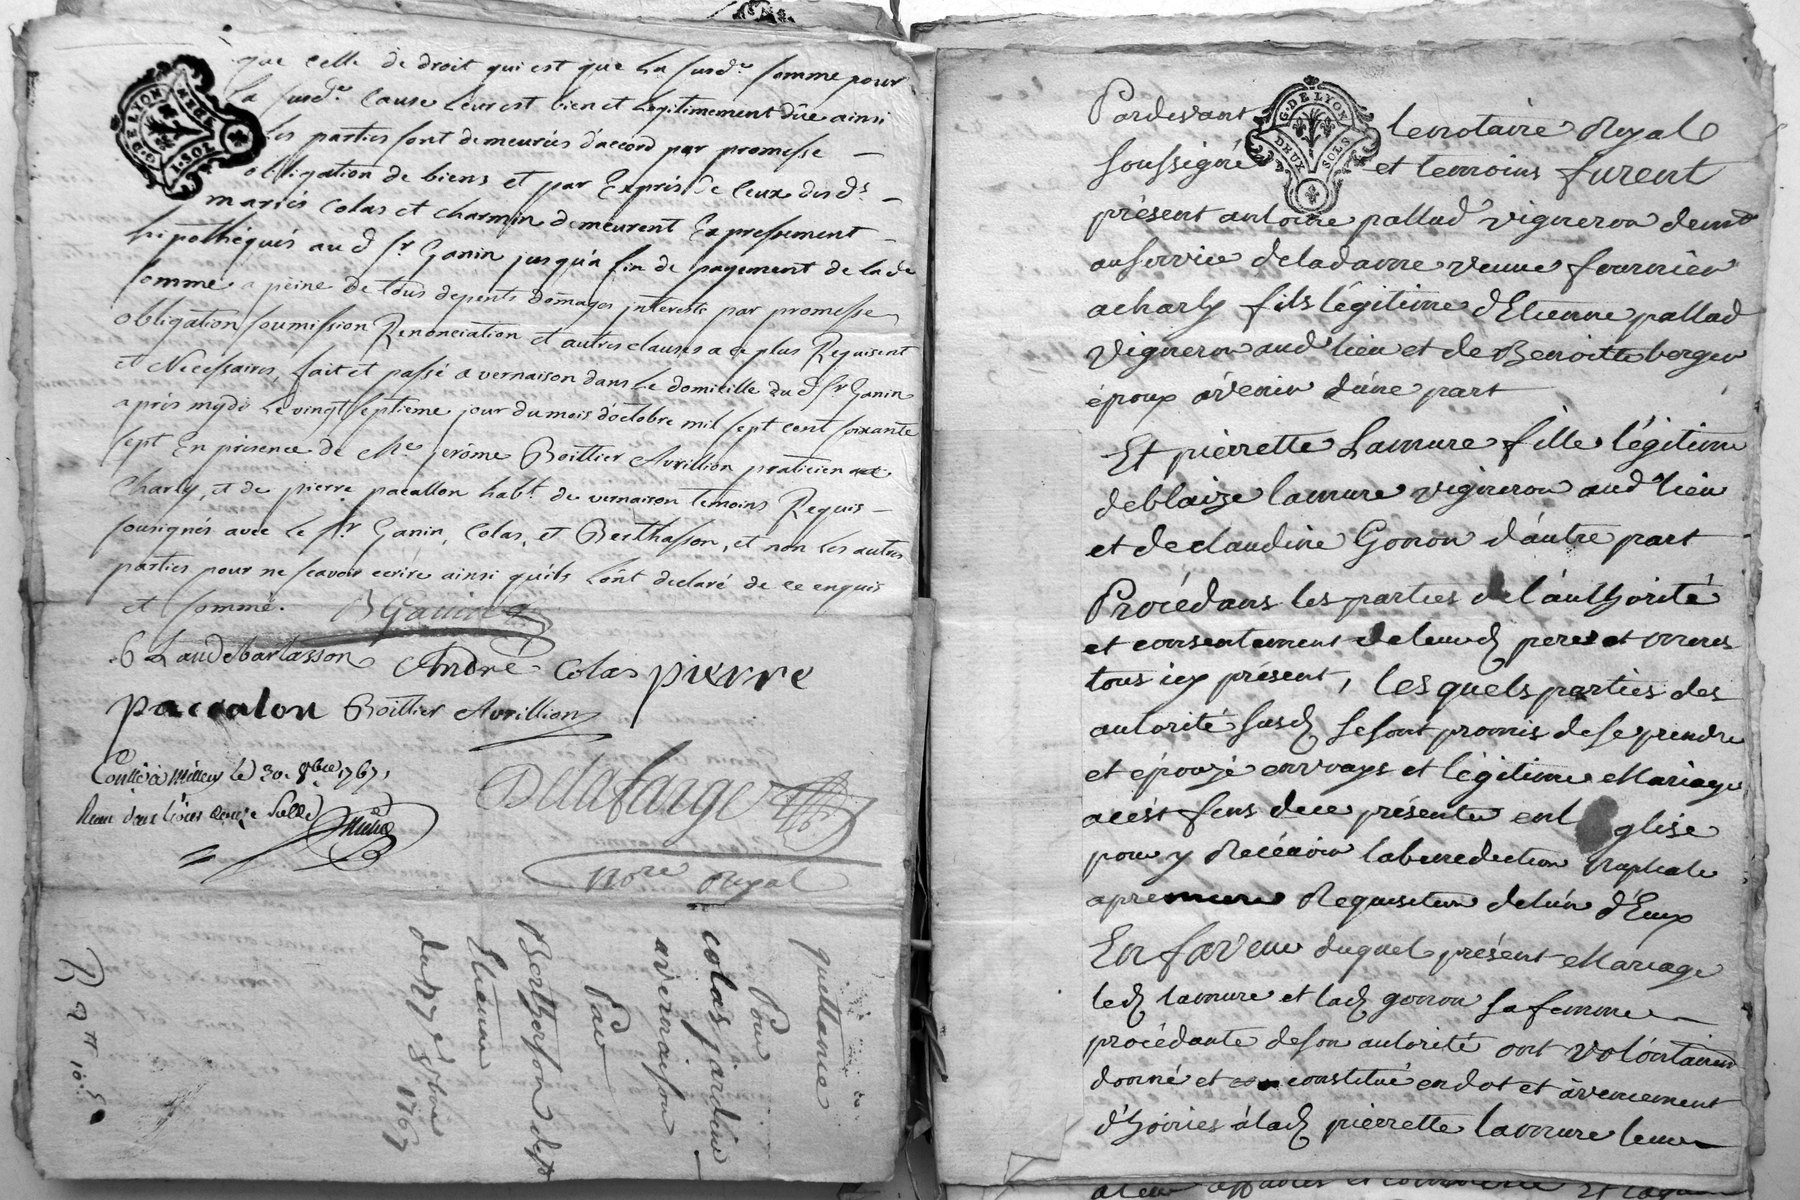 que celle de droit qui est que la susd.e somme pour
la susd.e cause leur est bien et légitimement düe ainsi
les parties sont demeuriés d'accord par promesse —
obligation de biens et par Exprés de Ceux desd.s —
mariés Colas et charmin demeurent Expressement —
hipothéqués aud Sr. Ganin jusqu'a fin de payement de lade
somme a peine de tous depents domages interests par promesse
obligation soumission Renonciation et autres clauses a ce plus Requisent
et Necessaires, fait et passé a vernaison dans le domicille du d Sr Ganin
après mydi le vingt septieme jour du mois d'octobre mil sept cent soixante
sept En présence de Me jerôme Boittier Avrillion praticien
Charly, et de pierre pacallon habt. de vernaison temoins Requis —
sousignés avec le Sr. Ganin, Colas, et Berthasson, et non les autres
parties pour ne scavoir écrire ainsi qu'ils l'ônt declaré de ce enquis
et sommé. BGanin
Laudebartasson André Colas pierre
paccalon Boittier Avrillion
Conllé a Millery le 30. 8bre 1767,
Delafarge
nore Royal
quittance
Pour
colas jardin
a vernaison
Par
Bertherson dest
Etienne
du 27e 8bre
1767
G. DE LYON
1. SOL
Pardevant le notaire Royal
G. DE LYON
DEUX SOLS
soussigné et temoins furent
présent antoine pallud vigneron demt
au service de la dame veuve fournier
a charly fils légitime d'Etienne pallud
vigneron aud lieu et de Benoitte berger
époux avenir d'une part
Et pierrette Lamure fille légitime
de blaize lamure vigneron aud lieu
et de claudine Gonon d'autre part
Procédans les parties de l'authorité
et consentement de leurd peres et meres
tous icy présent, les quels parties des
autorité susd se sont promis de se prendre
et épouzé en vrays et légitime Mariage
acést fins de ce présenter en l glise
pour y Recévoir la benediction nuptiale
a premiere Requisition de l'ún d'Eux
En faveur duquel présent Mariage
led lamure et lad gonon sa femme
procédante de son autorité ont volontairem
donné et constitué en dot et avencement
d'hoiries a lad pierrette lamure leur